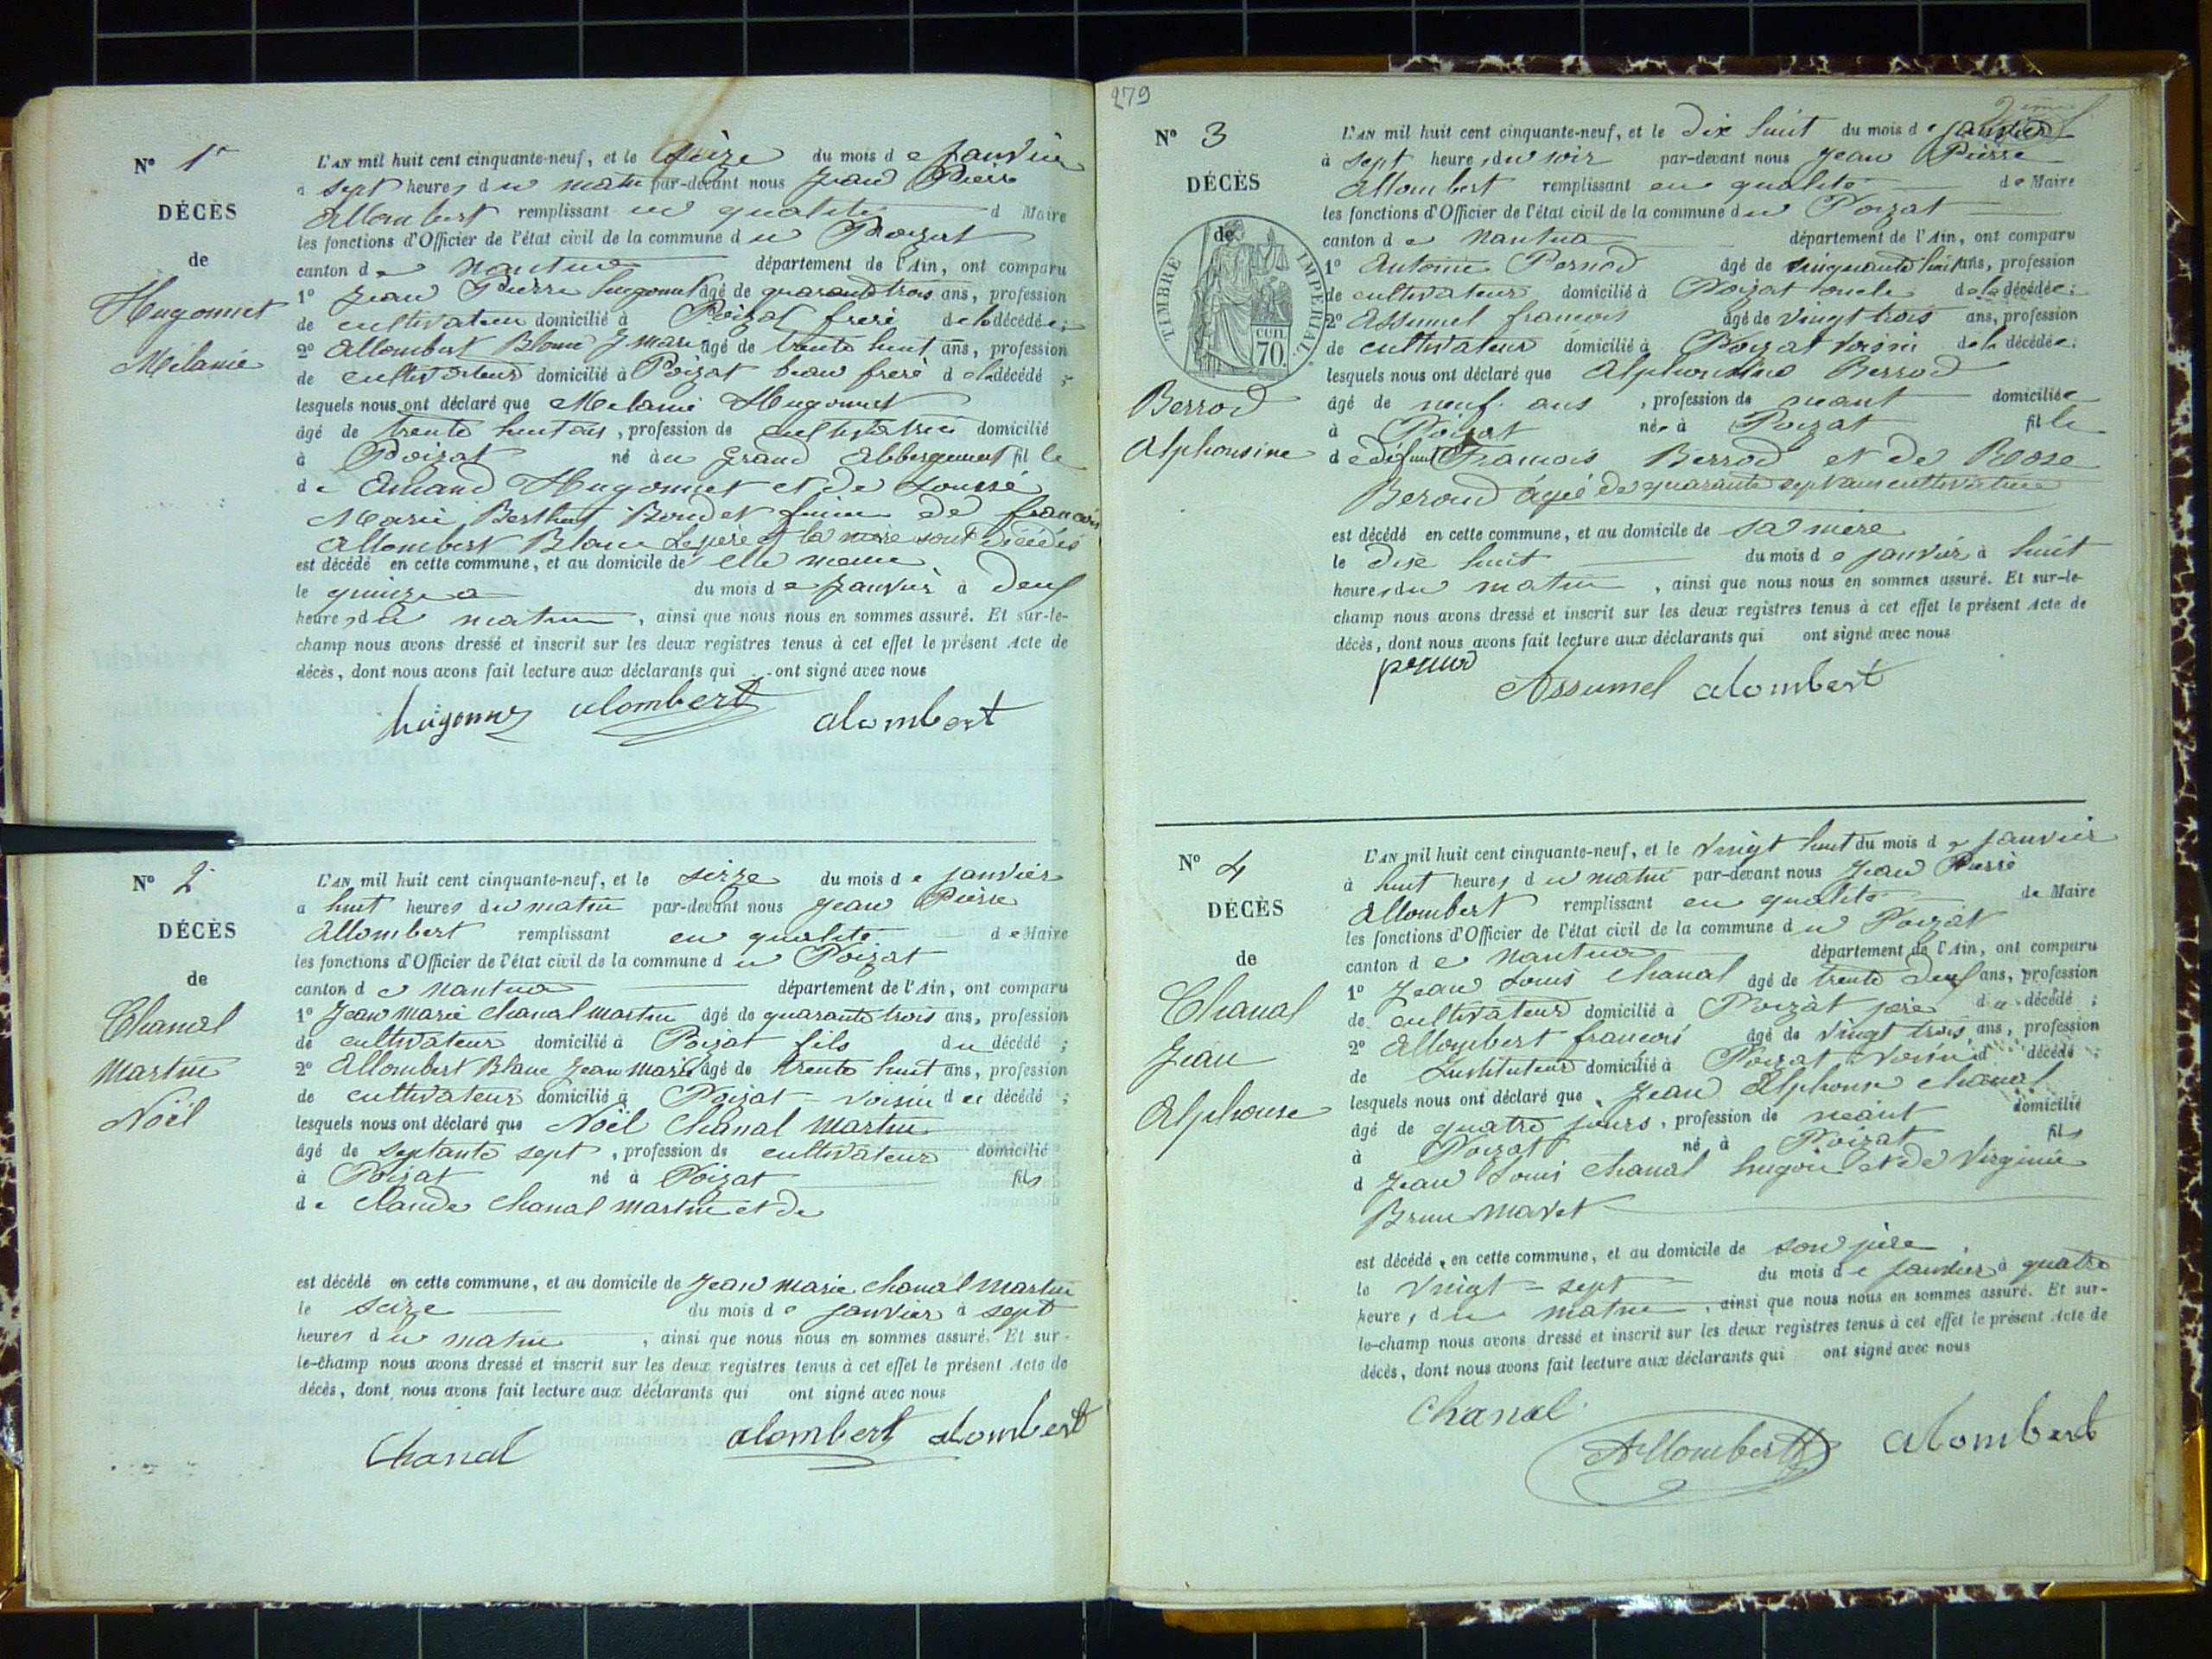 N° 1er
DÉCÈS
de
Hugonnet
Mélanie
L'AN mil huit cent cinquante-neuf, et le seize du mois de janvier
à sept heures du matin par-devant nous Jean Pierre
Allombert remplissant en qualité d Maire
les fonctions d'Officier de l'état civil de la commune du Poizat
canton de Nantua département de l'Ain, ont comparu
1° Jean Pierre hugonnet âgé de quarante trois ans, profession
de cultivateur domicilié à Poizat frere de la décédée;
2° Allombert Blanc J marie âgé de trente huit ans, profession
de cultivateur domicilié à Poizat beau frere de la décédé ;
lesquels nous ont déclaré que Melanie Hugonnet
âgé de trente huit ans, profession de cultivatrice domicilié
à Poizat né au Grand Abbergement fille
de Amand Hugonnet et de Loussé
Marie Berthet Bondet femme de francois
Allombert Blanc Le père et la mère sont décédés
est décédé en cette commune, et au domicile de elle meme
le quinze du mois de janvier à deux
heures du matin, ainsi que nous nous en sommes assuré. Et sur-le-
champ nous avons dressé et inscrit sur les deux registres tenus à cet effet le présent Acte de
décès, dont nous avons fait lecture aux déclarants qui ont signé avec nous
hugonnet alombert alombert
N° 2
DÉCÈS
de
Chanal
Martin
Noël
L'AN mil huit cent cinquante-neuf, et le seize du mois de janvier
à huit heures du matin par-devant nous Jean Pierre
Allombert remplissant en qualité de Maire
les fonctions d'Officier de l'état civil de la commune du Poizat
canton de Nantua département de l'Ain, ont comparu
1° Jean Marie Chanal Martin âgé de quarante trois ans, profession
de cultivateur domicilié à Poizat fils du décédé ;
2° Allombert Blanc Jean Marie âgé de trente huit ans, profession
de cultivateur domicilié à Poizat - voisin du décédé ;
lesquels nous ont déclaré que Noël Chanal Martin
âgé de septante sept, profession de cultivateur domicilié
à Poizat né à Poizat fils
de Claude Chanal Martin et de
est décédé en cette commune, et au domicile de Jean Marie Chanal Martin
le seize du mois de janvier à sept
heures du matin, ainsi que nous nous en sommes assuré. Et sur-
le-champ nous avons dressé et inscrit sur les deux registres tenus à cet effet le présent Acte de
décès, dont nous avons fait lecture aux déclarants qui ont signé avec nous
Chanal alombert alombert
279
2ème f
N° 3
DÉCÈS
de
TIMBRE IMPÉRIAL
CEN.
70.
Berrod
Alphonsine
L'AN mil huit cent cinquante-neuf, et le dix huit du mois de janvier
à sept heures du soir par-devant nous Jean Pierre
Allombert remplissant en qualité de Maire
les fonctions d'Officier de l'état civil de la commune du Poizat
canton de Nantua département de l'Ain, ont comparu
1° Antoine Pernod âgé de cinquante huit ans, profession
de cultivateur domicilié à Poizat oncle de la décédée;
2° Assumel francois âgé de vingt trois ans, profession
de cultivateur domicilié à Poizat voisin de la décédée;
lesquels nous ont déclaré que Alphonsine Berrod
âgé de neuf ans, profession de néant domiciliée
à Poizat née à Poizat fille
de défunt François Berrod et de Roze
Beroud âgée de quarante sept ans cultivatrice
est décédé en cette commune, et au domicile de sa mère
le dix huit du mois de janvier à huit
heures du matin, ainsi que nous nous en sommes assuré. Et sur-le-
champ nous avons dressé et inscrit sur les deux registres tenus à cet effet le présent Acte de
décès, dont nous avons fait lecture aux déclarants qui ont signé avec nous
Assumel alombert
N° 4
DÉCÈS
de
Chanal
Jean
Alphonse
L'AN mil huit cent cinquante-neuf, et le vingt huit du mois de janvier
à huit heures du matin par-devant nous Jean Pierre
Allombert remplissant en qualité de Maire
les fonctions d'Officier de l'état civil de la commune du Poizat
canton de Nantua département de l'Ain, ont comparu
1° Jean Louis Chanal âgé de trente deux ans, profession
de cultivateur domicilié à Poizat père du décédé ;
2° Allombert francois âgé de vingt trois ans, profession
de Instituteur domicilié à Poizat voisin d décédé ;
lesquels nous ont déclaré que Jean Alphonse Chanal
âgé de quatre jours, profession de néant domicilié
à Poizat né à Poizat fils
d Jean Louis Chanal hugon et de Virginie
Brun Mavet
est décédé, en cette commune, et au domicile de son père
le vingt-sept du mois de janvier à quatre
heures du matin, ainsi que nous nous en sommes assuré. Et sur-
le-champ nous avons dressé et inscrit sur les deux registres tenus à cet effet le présent Acte de
décès, dont nous avons fait lecture aux déclarants qui ont signé avec nous
Chanal
Allombert alombert